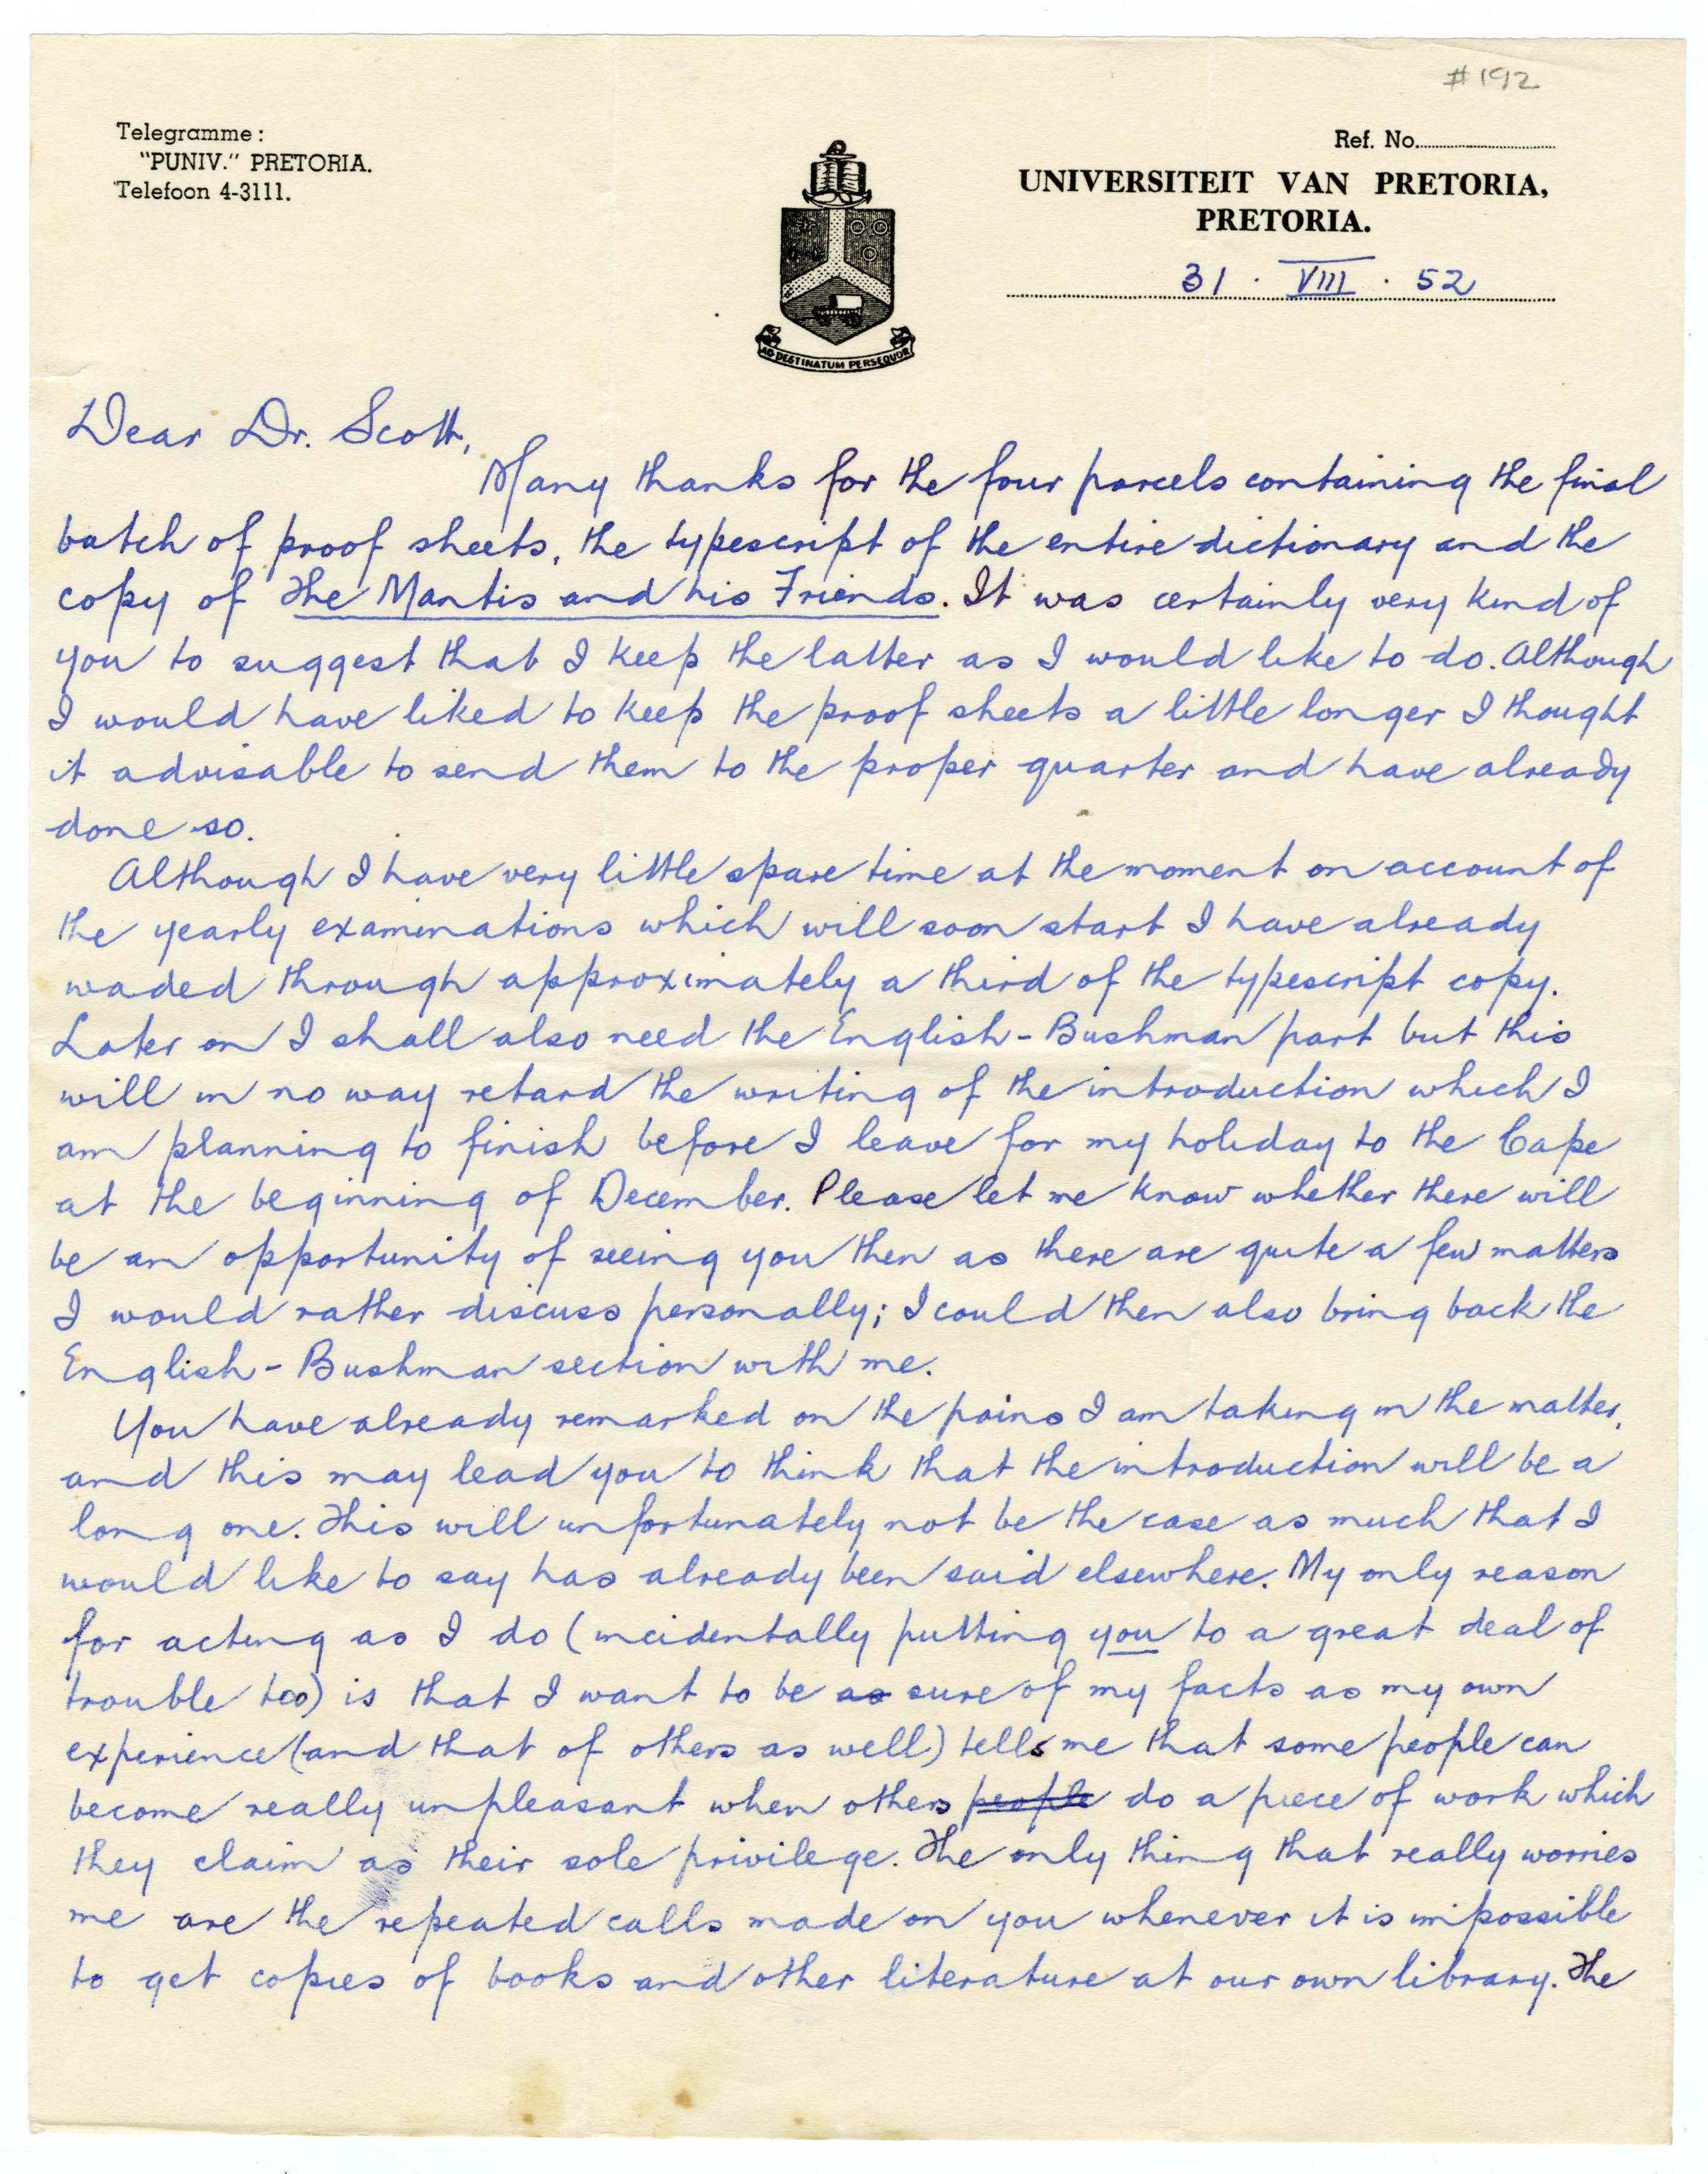 #192
Telegramme:
"PUNIV." PRETORIA.
Telefoon 4-3111.
Ref. No.
UNIVERSITEIT VAN PRETORIA,
PRETORIA.
31 · VIII · 52
AD DESTINATUM PERSEQUOR
Dear Dr. Scott,
Many thanks for the four parcels containing the final
batch of proof sheets, the typescript of the entire dictionary and the
copy of The Mantis and his Friends. It was certainly very kind of
you to suggest that I keep the latter as I would like to do. Although
I would have liked to keep the proof sheets a little longer I thought
it advisable to send them to the proper quarter and have already
done so.
Although I have very little spare time at the moment on account of
the yearly examinations which will soon start I have already
waded through approximately a third of the typescript copy.
Later on I shall also need the English-Bushman part but this
will in no way retard the writing of the introduction which I
am planning to finish before I leave for my holiday to the Cape
at the beginning of December. Please let me know whether there will
be an opportunity of seeing you then as there are quite a few matters
I would rather discuss personally; I could then also bring back the
English-Bushman section with me.
You have already remarked on the pains I am taking in the matter,
and this may lead you to think that the introduction will be a
long one. This will unfortunately not be the case as much that I
would like to say has already been said elsewhere. My only reason
for acting as I do (incidentally putting you to a great deal of
trouble too) is that I want to be as sure of my facts as my own
experience (and that of others as well) tells me that some people can
become really unpleasant when others people do a piece of work which
they claim as their sole privilege. The only thing that really worries
me are the repeated calls made on you whenever it is impossible
to get copies of books and other literature at our own library. The